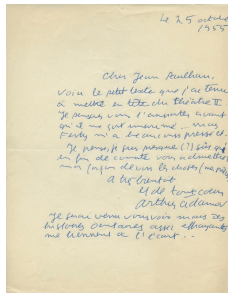 Le 25 octobre
1955
Cher Jean Paulhan,
voici le petit texte que j'ai tenu
à mettre en tête du théâtre II.
Je pensais vous l'apporter avant
qu'il ne soit imprimé... mais
m'a beaucoup pressé.
Je pense, je suis presque (?) sûr qu'
en fin de compte vous admettrez
mon façon de voir les choses
A bientôt
et de tout cœur
Arthur Adamov
Je serai venu vous voir mais des
histoires dentaires assez effrayantes
me tiennent à l'écart...